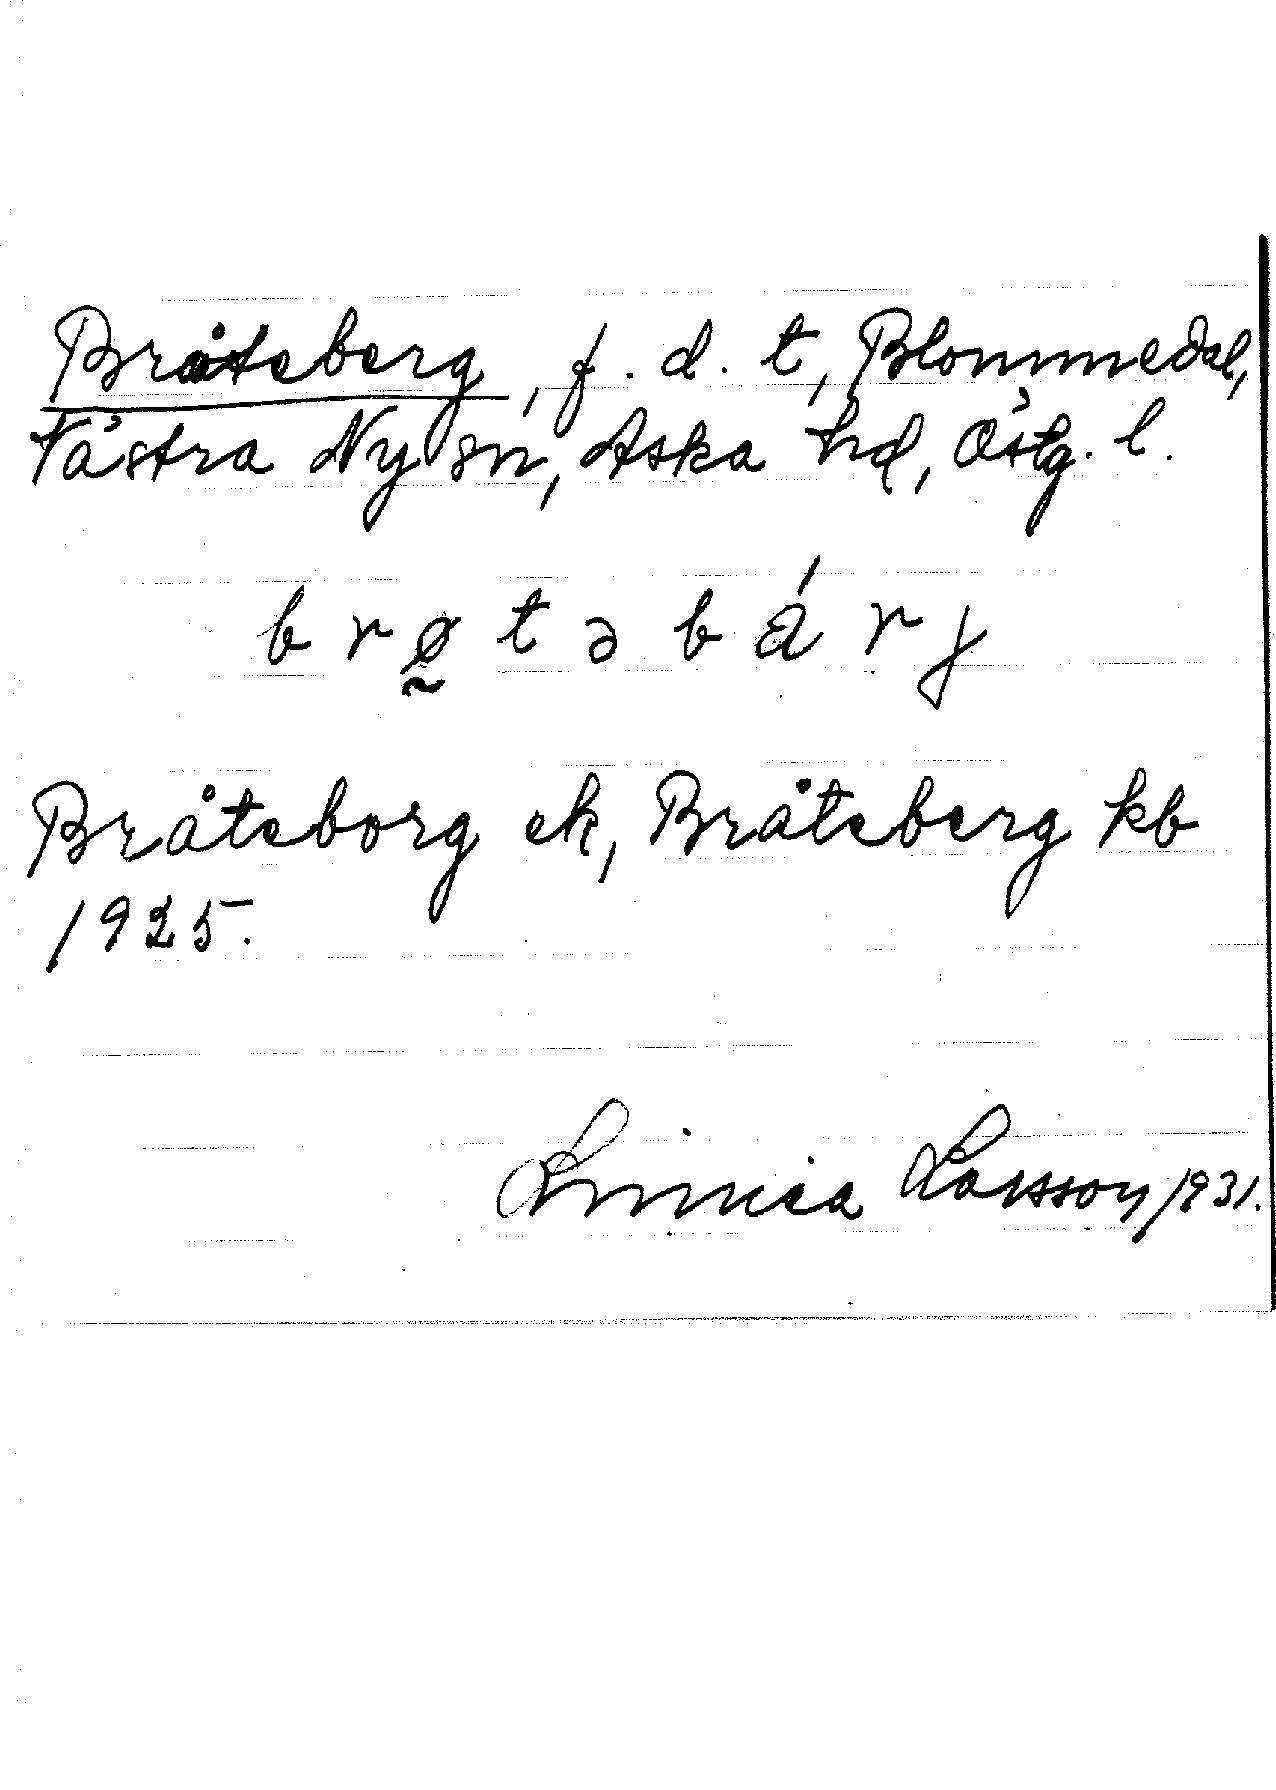 Bråteberg, f. d. t, Blommedal,
Västra Ny sn, Aska hd, Östg. l.
b r ø̰ t ə b á r j
Bråteborg ek, Bråteberg kb
1925.
Linnea Larsson 1931.